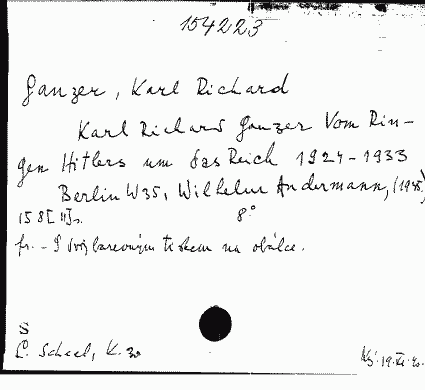 154223
Ganzer, Karl Richard
Karl Richard Ganzer Vom Rin-
gen Hitlers um das Reich 1924-1933
Berlin W35, Wilhelm Andermann,
158 8°
fr. - S barevným tiskem na obálce.
S
L. Scheel, K.